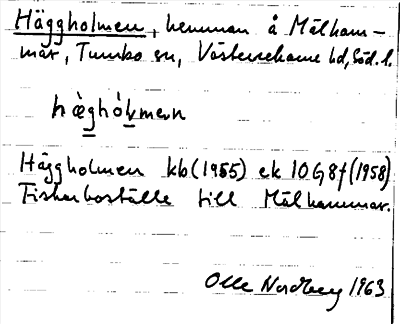 Häggholmen, hemman å Mälham-
mar, Tumbo sn, Västerrekarne hd, Söd. l.
hæ̀ghòlmęn
Häggholmen kb (1955) ek 10G8f (1958)
Fiskarboställe till Mälhammar.
Olle Nordberg 1963